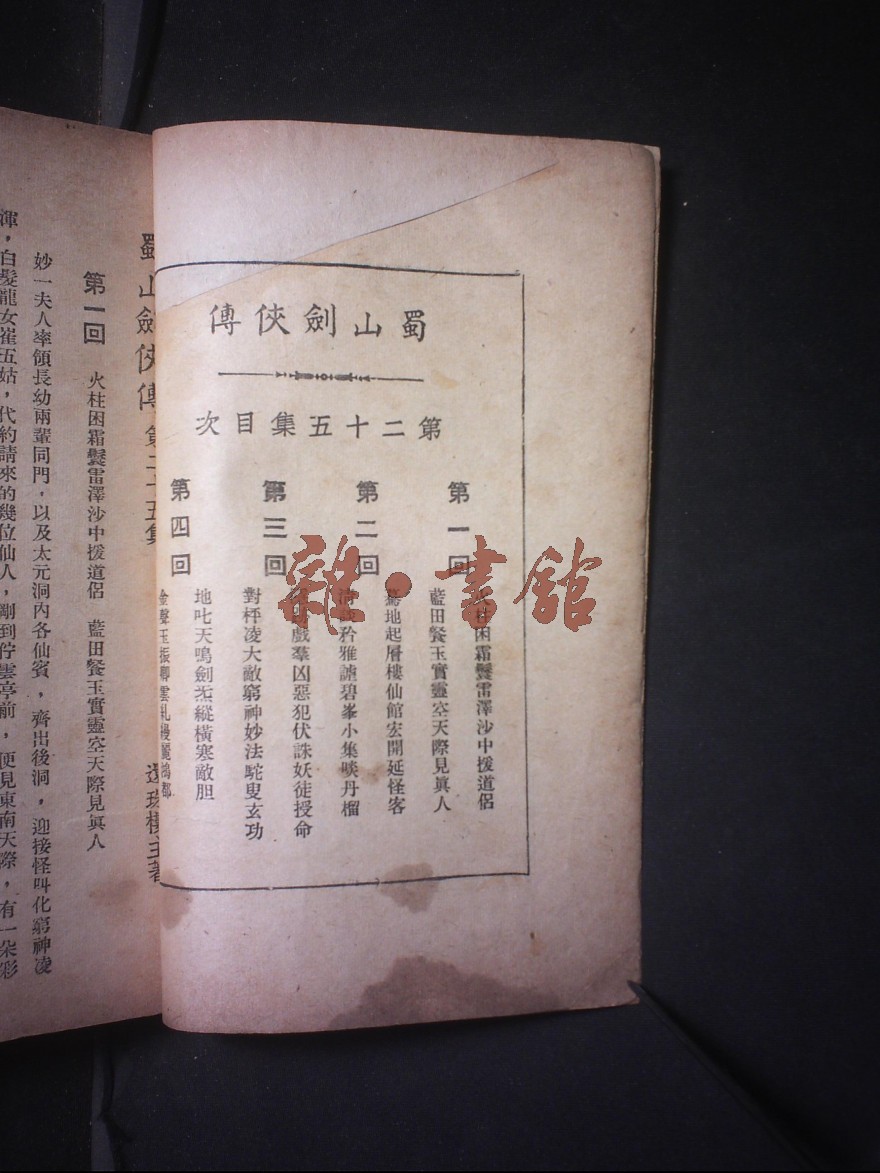 蜀山劍俠傳
第二十五集目次
第一回
柱困霜鬢雷澤沙中援道侶
藍田餐玉實靈空天際見眞人
第二回
驀地起層樓仙館宏開延怪客
矜雅謔碧峯小集啖丹榴
第三回
戲羣凶惡犯伏誅妖徒授命
對枰凌大敵窮神妙法駝叟玄功
第四回
地叱天鳴劍炁縱橫寒敵胆
金聲玉振卿雲糺縵麗鴻都
蜀山劍俠傳 第二十五集
還珠樓主著
第一回 火柱困霜鬢雷澤沙中援道侶 藍田餐玉實靈空天際見眞人
妙一夫人率領長幼兩輩同門，以及太元洞內各仙賓，齊出後洞，迎接怪叫化窮神凌
渾，白髮龍女崔五姑，代約請來的幾位仙人，剛到佇雲亭前，便見東南天際，有一朵彩
雜·書館